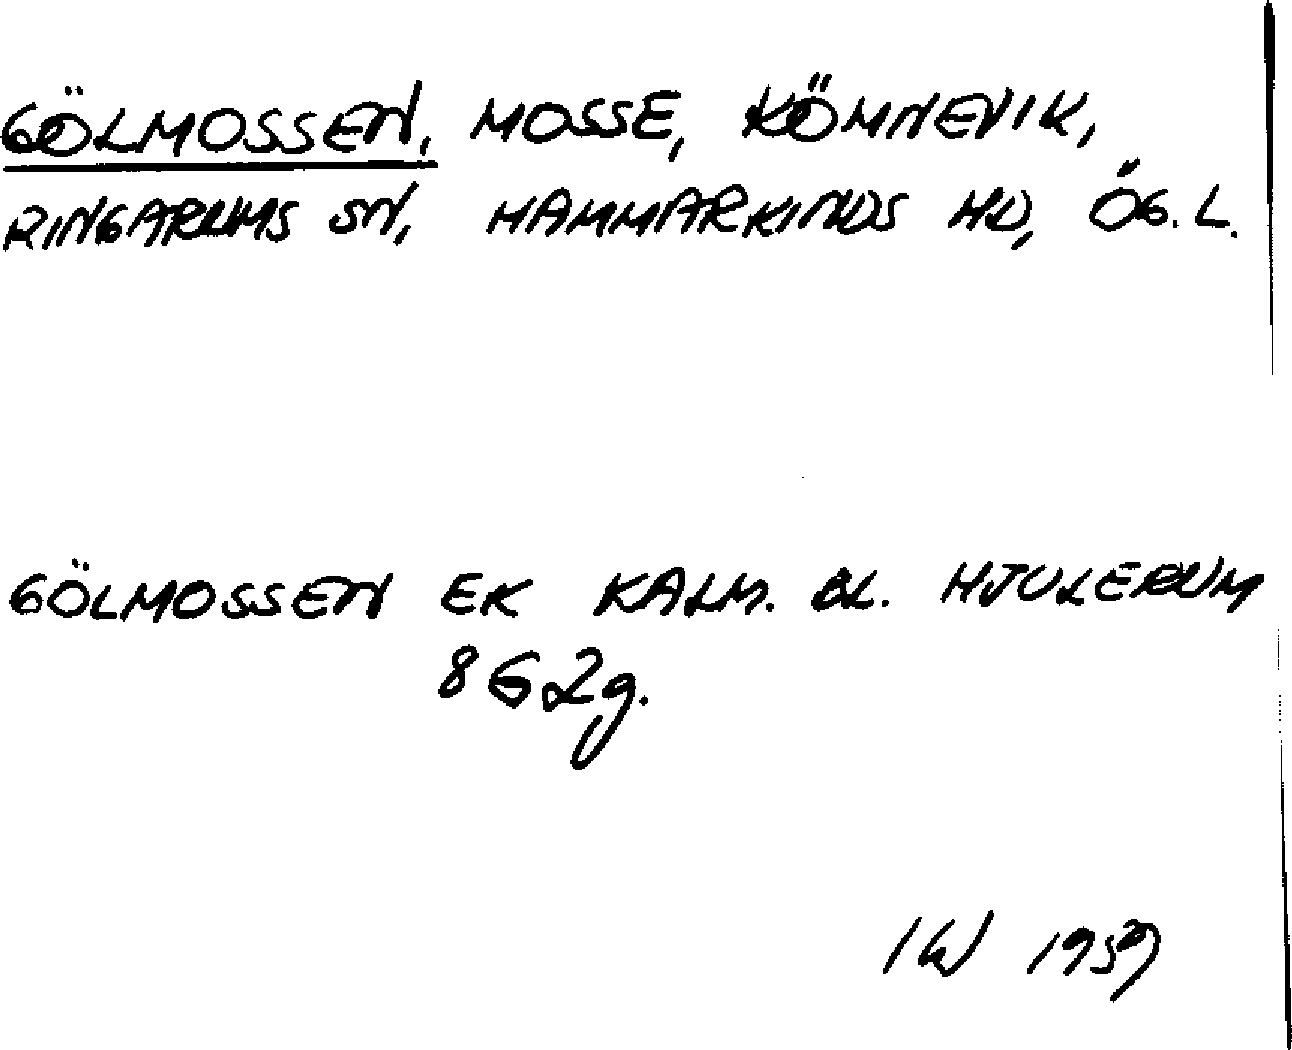 GÖLMOSSEN, MOSSE, KÖMNEVIK,
RINGARUMS SN, HAMMARKINDS HD, ÖG. L.
GÖLMOSSEN EK KALM. BL. HJULERUM
8G2g.
IW 1959